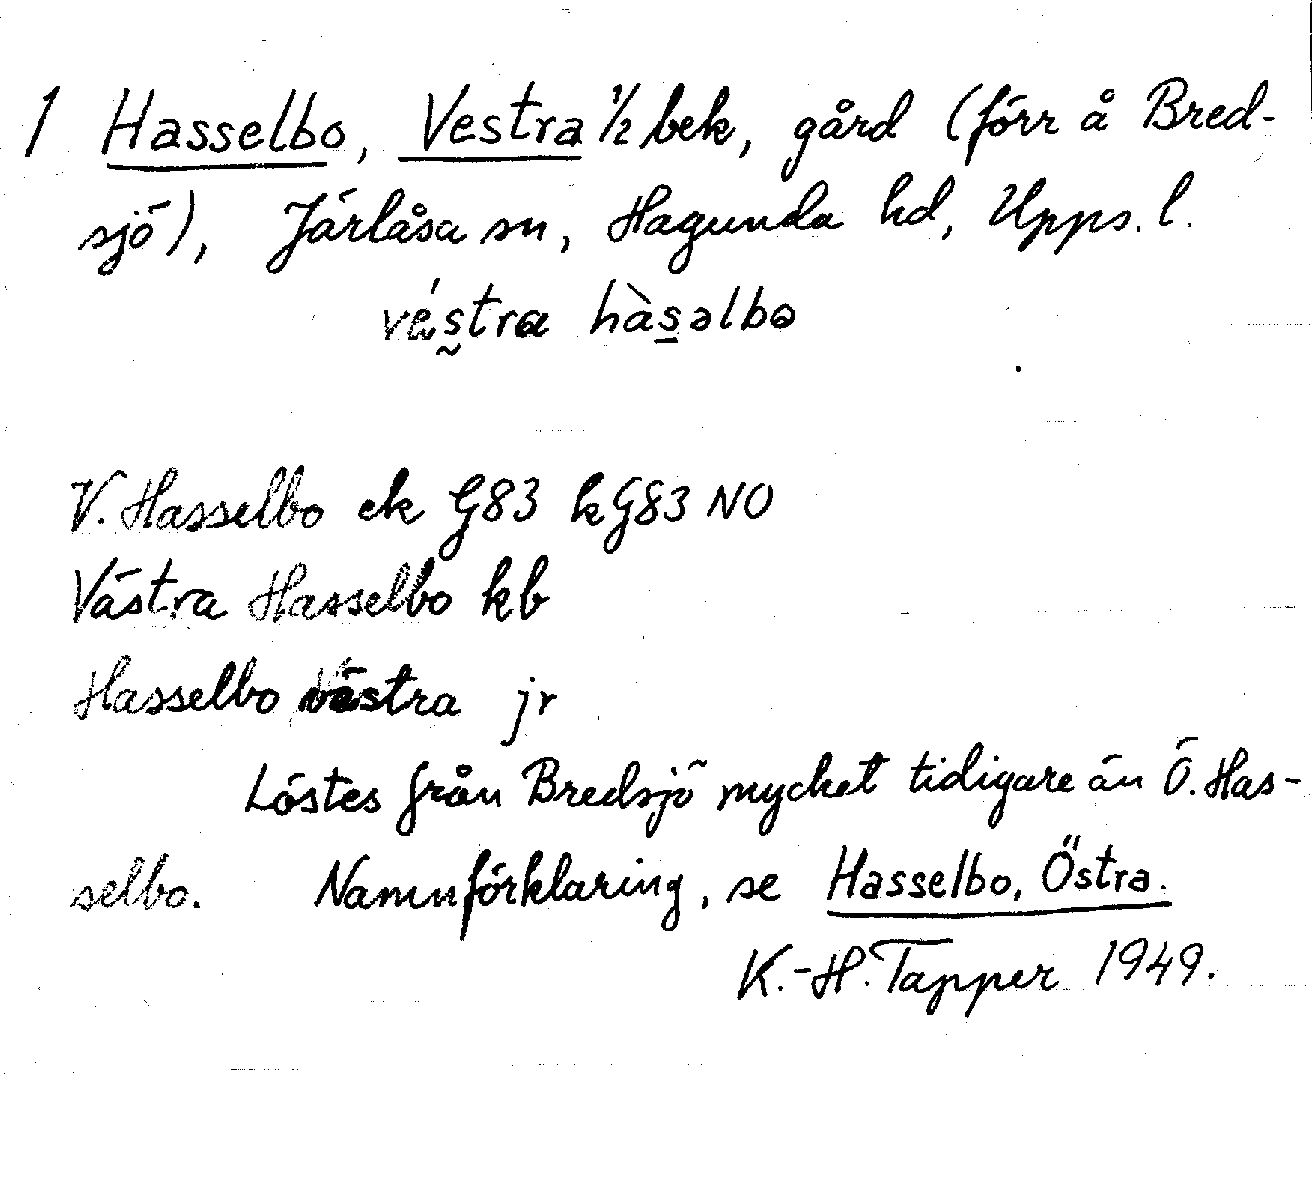 1 Hasselbo, Vestra 1/2 bek, gård (förr å Bred-
sjö), Järlåsa sn, Hagunda hd, Upps. l.
véstra hàsəlbo
V. Hasselbo ek G83 kG83 NO
Västra Hasselbo kb
Hasselbo västra jr
Löstes från Bredsjö mycket tidigare än Ö. Has-
selbo. Namnförklaring, se Hasselbo, Östra.
K.-H. Tapper 1949.